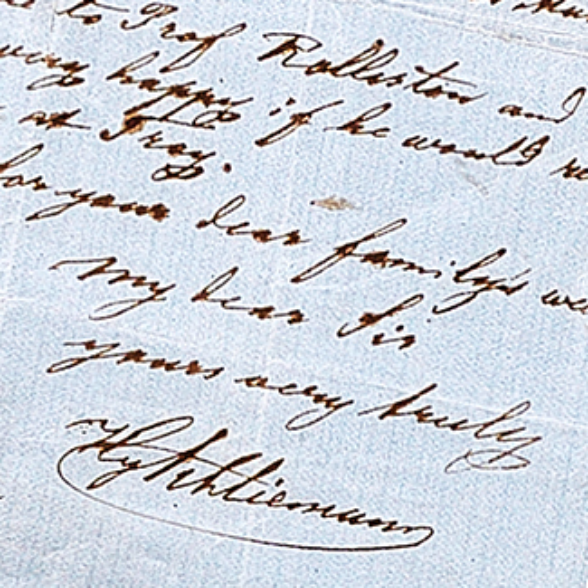 to Prof Rolliston and
very happy if he would
at Troy.
for your dear family's we
My dear Sir
yours very truly
HySchliemann